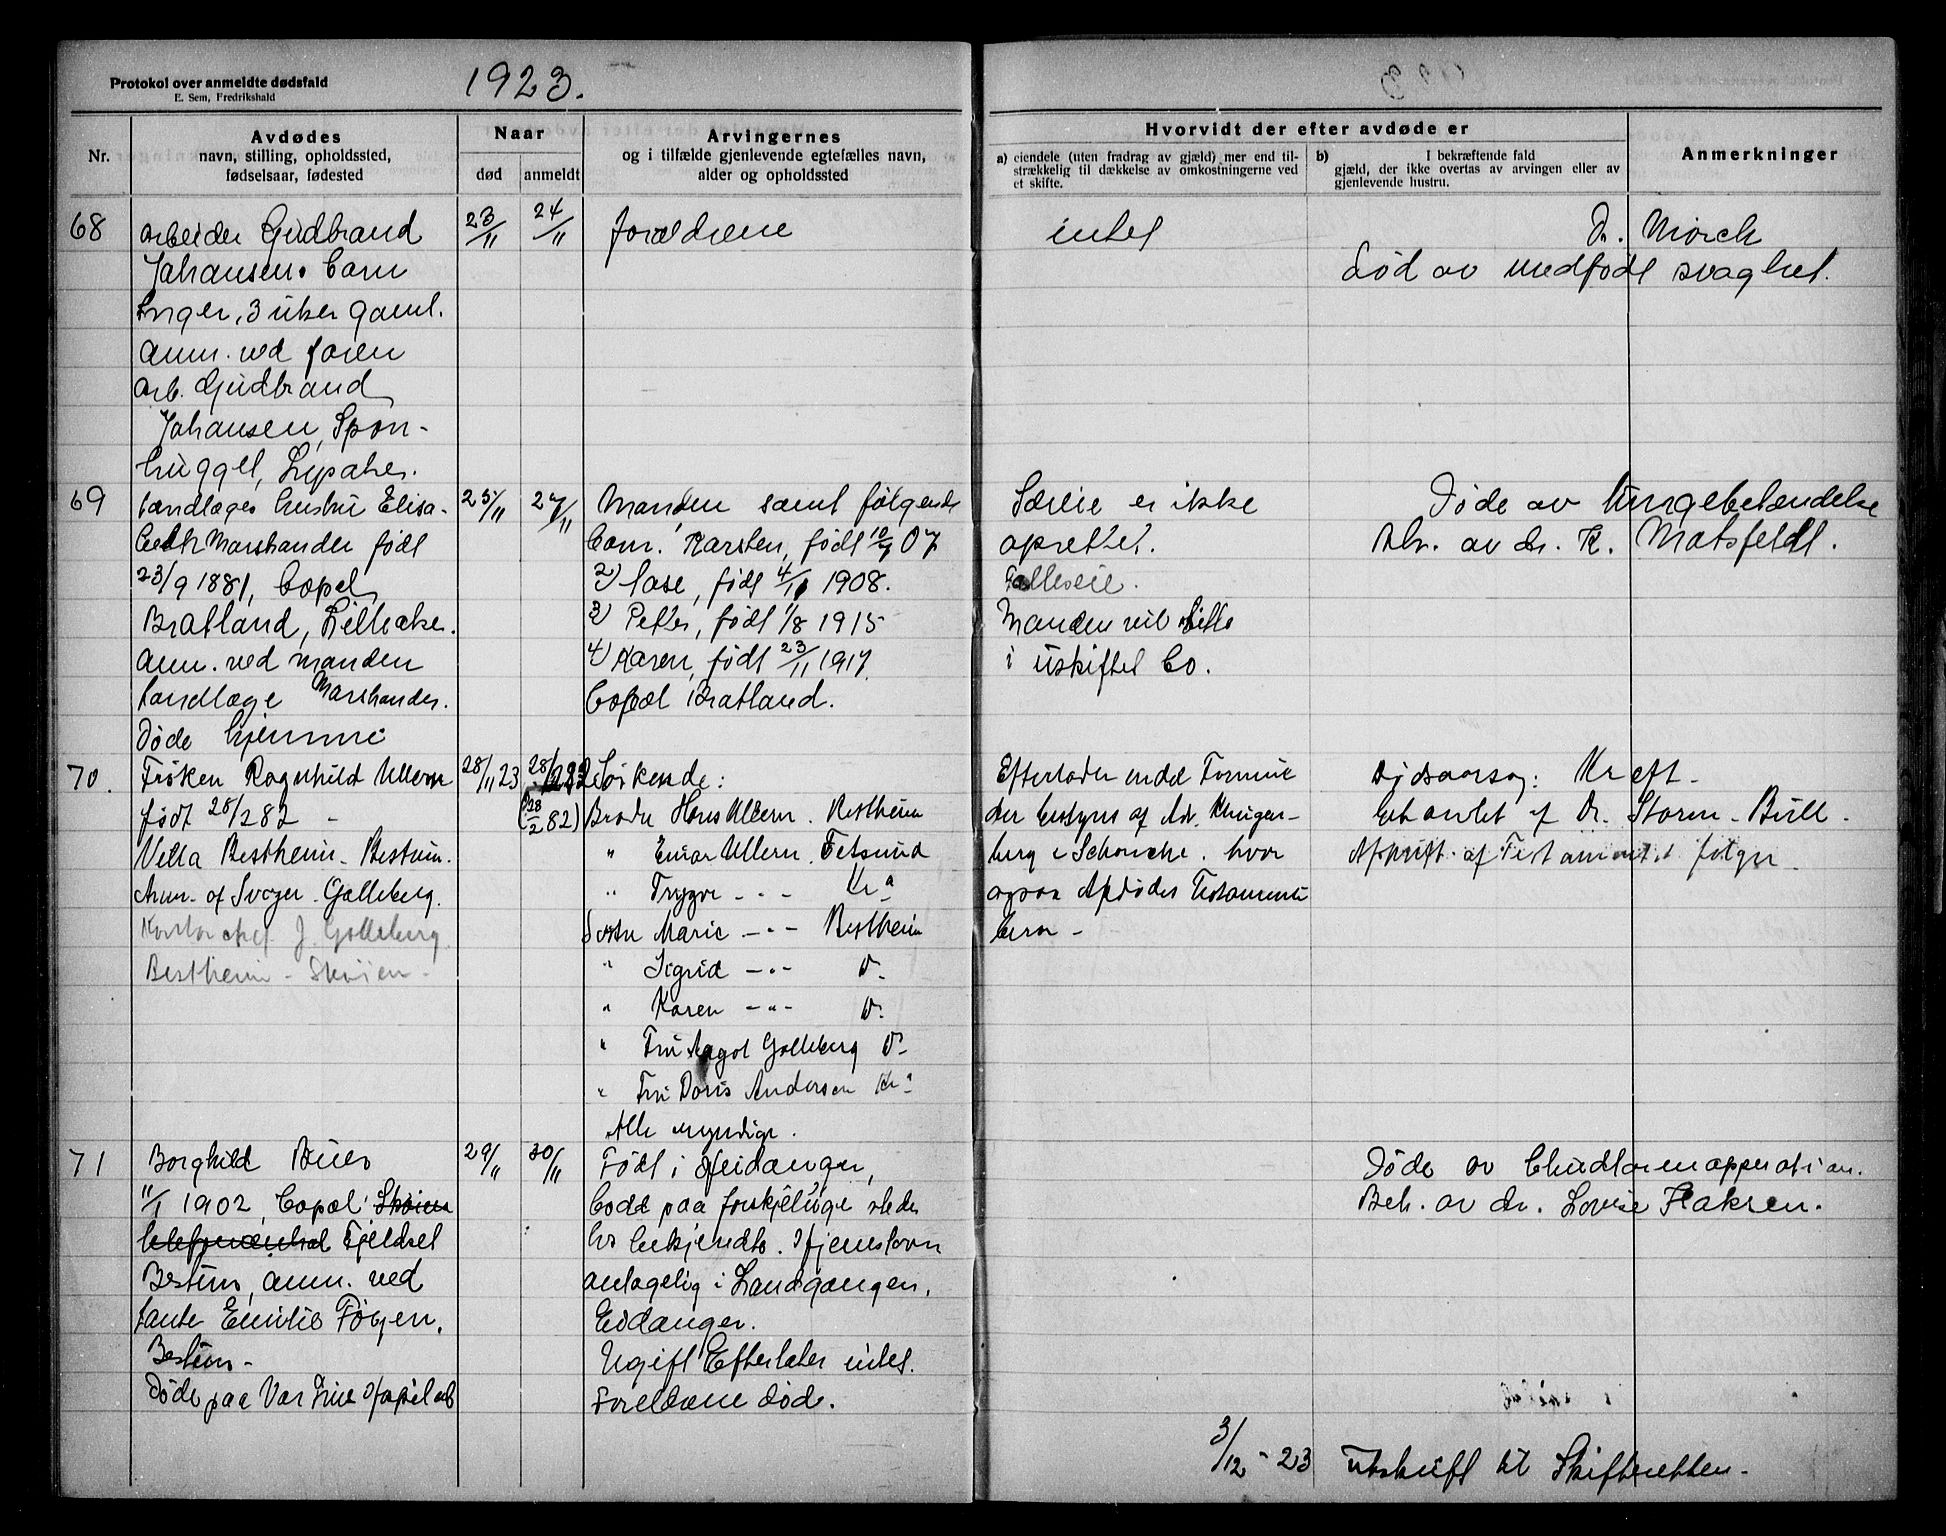 Protokol over anmeldte dødsfald
E. Sem, Fredrikshald
1923.
Nr.
Avdødes
navn, stilling, opholdssted,
fødselsaar, fødested
Naar
død
anmeldt
Arvingernes
og i tilfælde gjenlevende egtefælles navn,
alder og opholdssted
Hvorvidt der efter avdøde er
a) eiendele (uten fradrag av gjæld) mer end til-
strækkelig til dækkelse av omkostningerne ved
et skifte.
b) I bekræftende fald
gjæld, der ikke overtas av arvingen eller av
gjenlevende hustru.
Anmerkninger
68
arbeider Gudbrand
Johansens barn
Inger, 3 uker gaml.
anm. ved faren
arb. Gudbrand
Johansen, Spon-
hugget, Lysaker.
23/11
24/11
forældrene
intet
Dr. Mørch
død av medfødt svaghet.
69
tandlæges hustru Elisa-
beth Marshander født
23/9 1881, bopel
Bratland, Lilleaker.
anm. ved manden
tandlæge Marshander.
Døde hjemme
25/11
27/11
Manden samt følgende
barn. Karsten, født 10/9 07
2) Aase, født 4/11 1908.
3) Petter, født 1/8 1915
4) Karen, født 23/11 1917
bopæl Bratland.
Særeie er ikke
oprettet.
Fælleseie.
Manden vil sitte
i uskiftet bo.
Døde av lungebetændelse
Beh. av dr. K. Motzfeldt.
70.
Frøken Ragnhild Ullern
født 28/2 82 -
Villa Bestheim - Bestum.
Anm. af Svoger - Golleberg.
Kontorchef J. Golleberg.
Bestheim - Skøien -
28/11 23
28/11 23
(28/2 82)
Søskende:
Broder Hans Ullern. Bestheim
" Einar Ullern, Fetsund
" Trygve - " - Kr a
Søster Marie - " - Bestheim
" Sigrid - " - Do
" Karen - " - Do
" Fru Aagot Golleberg Do
" Fru Doris Andersen Kr a
Alle myndige.
Efterlader endel Formue
der bestyres af Adv. Klingen-
berg i Schancke. hvor
ogsaa Afdødes Testamente
bero -
Dødsaarsag: Kreft -
behandlet af Dr. Storm - Bull -
Afskrift af Testamentet følger -
71
Borghild Buer
11/1 1902, bopæl Skøiens
telefoncentral Fjeldset
Bestum, anm. ved
tante Emilie Torgjen,
Bestum -
Døde paa Vor Frue Hospital
29/11
30/11
Født i Heidanger,
bodd paa forskjellige steder
hos bekjendte. Hjemstavn
antagelig i Landgangen,
Eidanger.
Ugift Efterlater intet.
Foreldrene døde.
Døde av blindtarmopperation.
Beh. av dr. Lovise Isaksen.
3/12 - 23
Utskrift til Skifteretten -